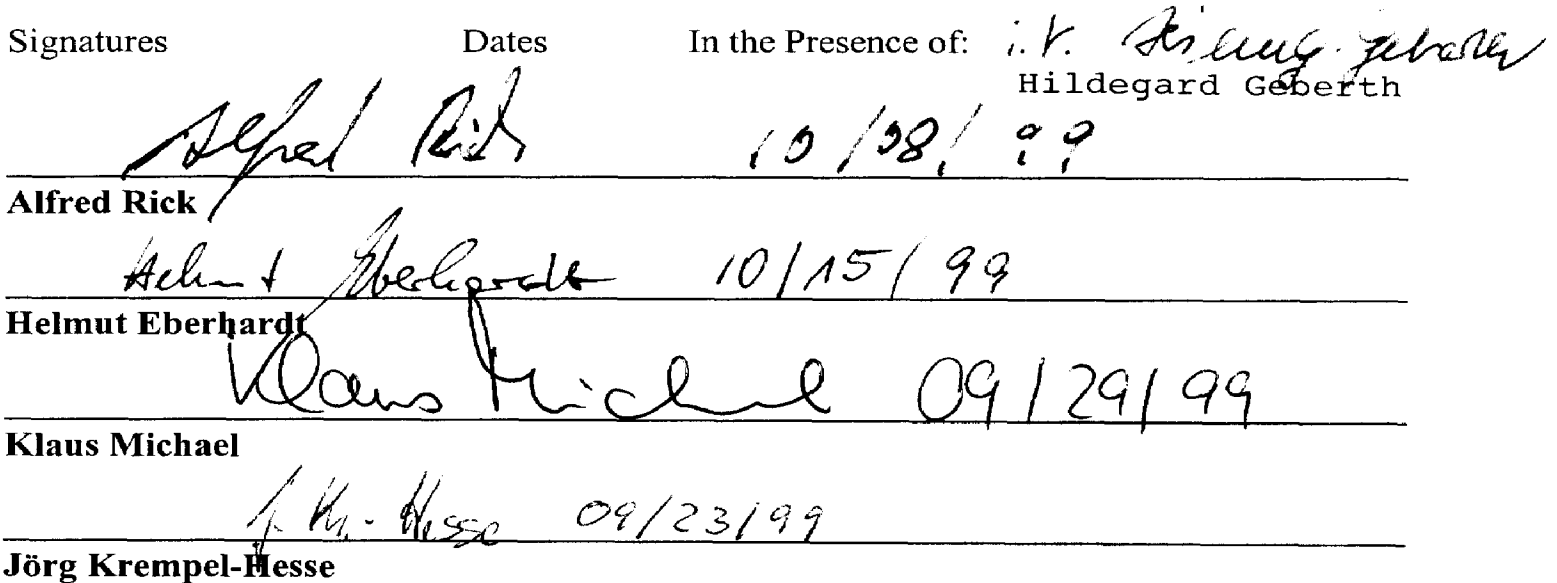 Signatures Dates In the Presence of: i.V.
Hildegard Geberth
Alfred Rick 10/08/99
Alfred Rick
Helmut Eberhardt 10/15/99
Helmut Eberhardt
Klaus Michael 09/29/99
Klaus Michael
J. Kr.-Hesse 09/23/99
Jörg Krempel-Hesse